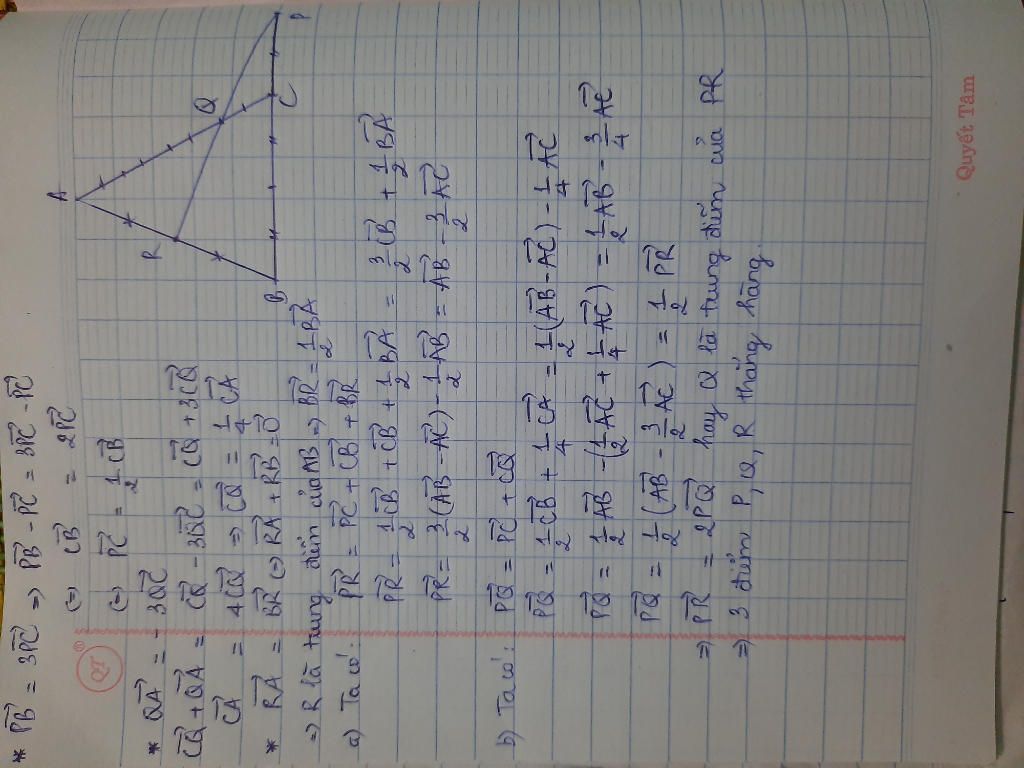 * \overrightarrow{PB} = 3\overrightarrow{PC} => \overrightarrow{PB} - \overrightarrow{PC} = 3\overrightarrow{PC} - \overrightarrow{PC}
(=) \overrightarrow{CB} = 2\overrightarrow{PC}
(=) \overrightarrow{PC} = \frac{1}{2}\overrightarrow{CB}
QT
®
* \overrightarrow{QA} = - 3\overrightarrow{QC}
\overrightarrow{CQ} + \overrightarrow{QA} = \overrightarrow{CQ} - 3\overrightarrow{QC} = \overrightarrow{CQ} + 3\overrightarrow{CQ}
\overrightarrow{CA} = 4\overrightarrow{CQ} => \overrightarrow{CQ} = \frac{1}{4}\overrightarrow{CA}
* \overrightarrow{RA} = \overrightarrow{BR} (=) \overrightarrow{RA} + \overrightarrow{RB} = \overrightarrow{0}
=> R là trung điểm của AB => \overrightarrow{BR} = \frac{1}{2}\overrightarrow{BA}
A
R
Q
B
C
P
a) Ta có: \overrightarrow{PR} = \overrightarrow{PC} + \overrightarrow{CB} + \overrightarrow{BR}
\overrightarrow{PR} = \frac{1}{2}\overrightarrow{CB} + \overrightarrow{CB} + \frac{1}{2}\overrightarrow{BA} = \frac{3}{2}\overrightarrow{CB} + \frac{1}{2}\overrightarrow{BA}
\overrightarrow{PR} = \frac{3}{2}(\overrightarrow{AB} - \overrightarrow{AC}) - \frac{1}{2}\overrightarrow{AB} = \overrightarrow{AB} - \frac{3}{2}\overrightarrow{AC}
b) Ta có: \overrightarrow{PQ} = \overrightarrow{PC} + \overrightarrow{CQ}
\overrightarrow{PQ} = \frac{1}{2}\overrightarrow{CB} + \frac{1}{4}\overrightarrow{CA} = \frac{1}{2}(\overrightarrow{AB} - \overrightarrow{AC}) - \frac{1}{4}\overrightarrow{AC}
\overrightarrow{PQ} = \frac{1}{2}\overrightarrow{AB} - (\frac{1}{2}\overrightarrow{AC} + \frac{1}{4}\overrightarrow{AC}) = \frac{1}{2}\overrightarrow{AB} - \frac{3}{4}\overrightarrow{AC}
\overrightarrow{PQ} = \frac{1}{2}(\overrightarrow{AB} - \frac{3}{2}\overrightarrow{AC}) = \frac{1}{2}\overrightarrow{PR}
=> \overrightarrow{PR} = 2\overrightarrow{PQ} hay Q là trung điểm của PR
=> 3 điểm P, Q, R thẳng hàng.
Quyết Tâm